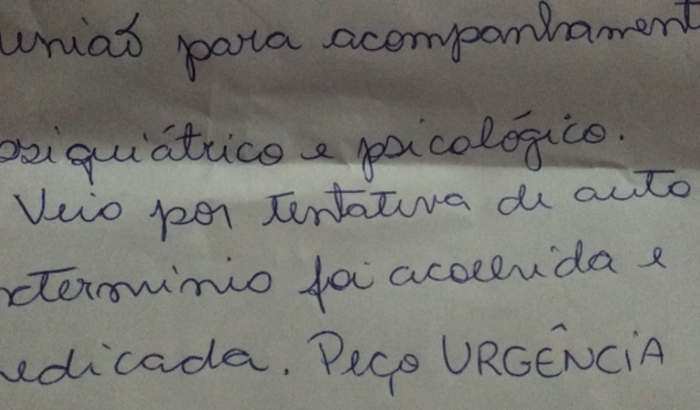 união para acompanhament
psiquiátrico e psicológico.
Veio por tentativa de auto
xterminio foi acolhida e
edicada. Peço URGÊNCIA